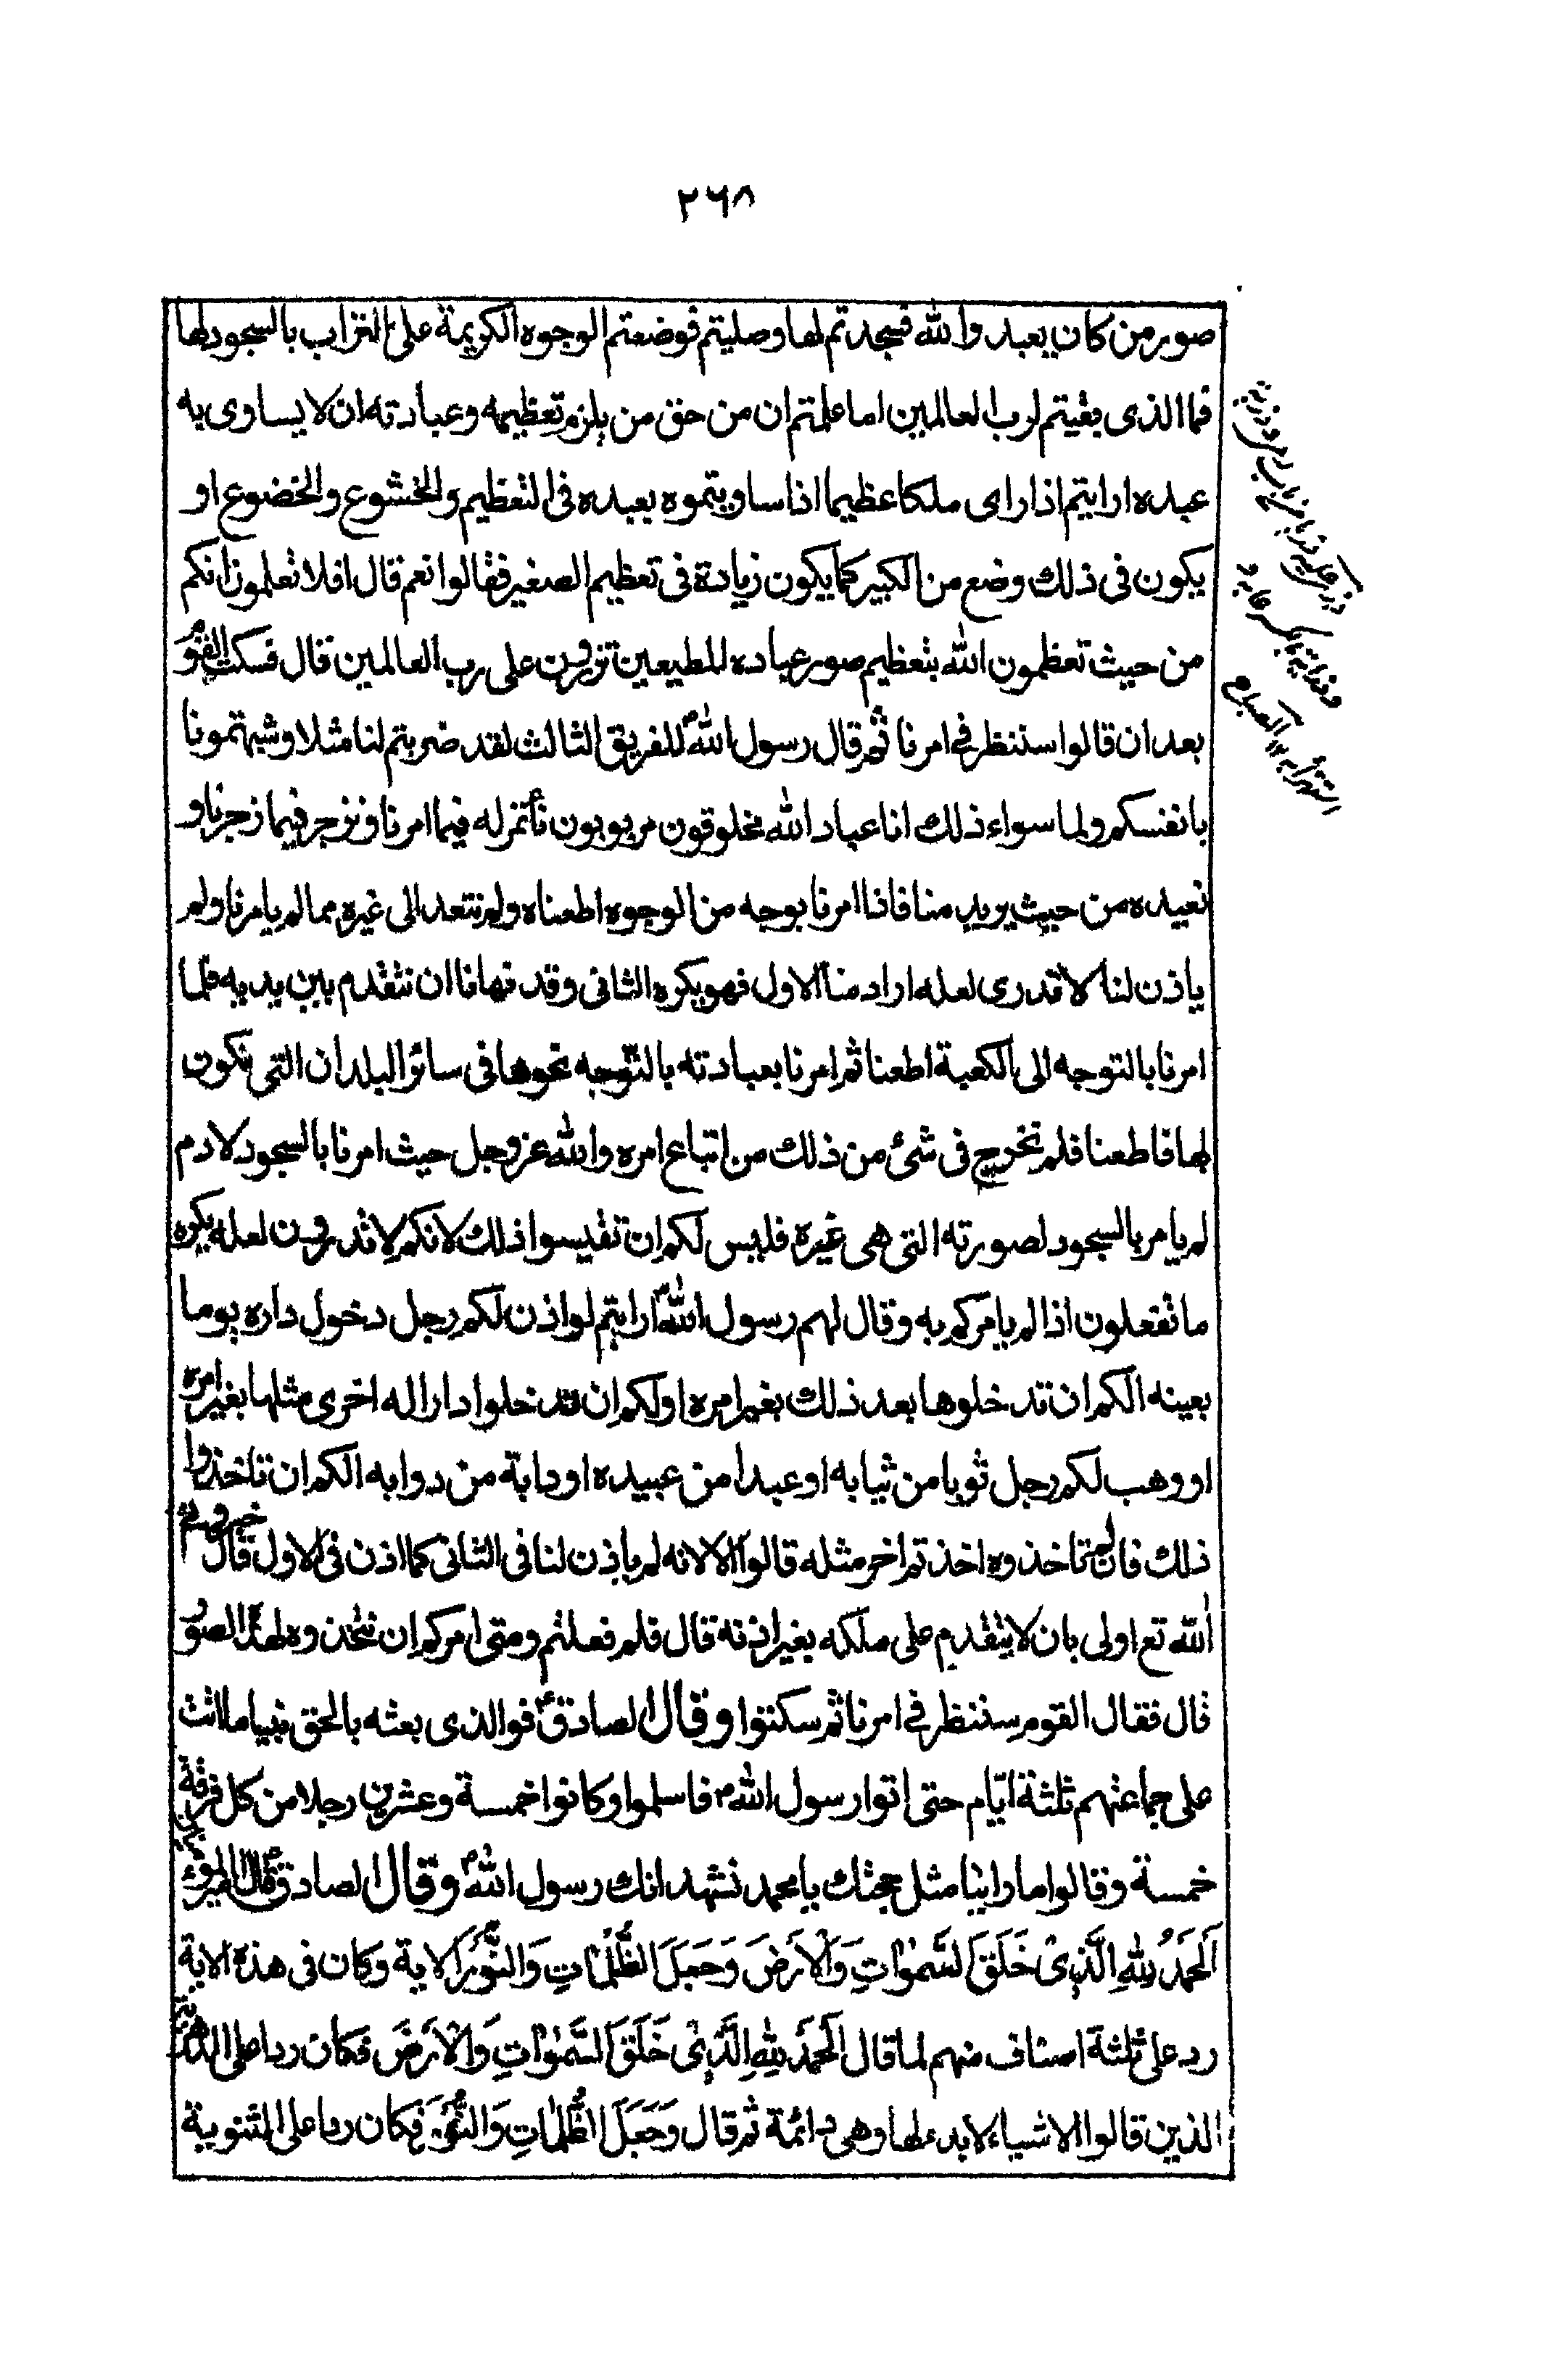 ٢٦٨
صور من كان يعبد والله فسجدتم لها وصليتم فوضعتم الوجوه الكريمة على التراب بالسجود لها
فما الذى بقيتم لرب العالمين اما علمتم ان من حق من يلزم تعظيمه وعبادته ان لا يساوى به
عبده ارايتم اذا راى ملكا عظيما اذا ساويتموه بعبده فى التعظيم والخشوع والخضوع او
يكون فى ذلك وضع من الكبير كما يكون زيادة فى تعظيم الصغير فقالوا نعم قال افلا تعلمون انكم
من حيث تعظمون الله بتعظيم صور عباده المطيعين تزرون على رب العالمين قال فسكت القوم
بعد ان قالوا سننظر في امرنا ثم قال رسول الله ص للفريق الثالث لقد ضربتم لنا مثلا وشبهتمونا
بانفسكم ولما سواء ذلك انا عباد الله مخلوقون مربوبون نأتمر له فيما امرنا وننزجر فيما زجرنا و
نعبده من حيث يريد منا فاذا امرنا بوجه من الوجوه اطعناه ولم نتعد الى غيره مما لم يامرنا ولم
ياذن لنا لانا لا ندرى لعله اراد منا الاول فهو يكره الثانى وقد نهانا ان نتقدم بين يديه فلما
امرنا بالتوجه الى الكعبة اطعنا ثم امرنا بعبادته بالتوجه نحوها فى سائر البلدان التى تكون
بها فاطعنا فلم نخرج فى شئ من ذلك من اتباع امره والله عز وجل حيث امرنا بالسجود لادم
لم يامر بالسجود لصورته التى هى غيره فليس لكم ان تقيسوا ذلك لانكم لا تدرون لعله يكره
ما تفعلون اذا لم يامركم به وقال لهم رسول الله ص ارايتم لو اذن لكم رجل دخول داره يوما
بعينه الكم ان تدخلوها بعد ذلك بغير امره او لكم ان تدخلوا دارا له اخرى مثلها بغير امره
او وهب لكم رجل ثوبا من ثيابه او عبدا من عبيده او دابة من دوابه الكم ان تاخذوا
ذلك فان لم تاخذوه اخذتم اخر مثله قالوا لا لانه لم ياذن لنا فى الثانى كما اذن فى الاول قال
الله تع اولى بان لا يتقدم على ملكه بغير اذنه قال فلم فعلتم ومتى امركم ان تتخذوه لهذا الصور
قال فقال القوم سننظر في امرنا ثم سكتوا وقال الصادق ع فوالذى بعثه بالحق نبيا ما اتت
على جماعتهم ثلثة ايّام حتى اتوا رسول الله ص فاسلموا وكانوا خمسة وعشرين رجلا من كل فرقة
خمسة وقالوا ما راينا مثل حجتك يا محمد نشهد انك رسول الله ص وقال الصادق ع قال امير
اَلْحَمْدُ لِلّهِ الَّذِىْ خَلَقَ السَّمٰوٰاتِ وَالْاَرْضَ وَجَعَلَ الظُّلُمٰاتِ وَالنُّوْرَ الاية وكان فى هذه الاية
رد على ثلثة اصناف منهم لما قال اَلْحَمْدُ لِلّهِ الَّذِىْ خَلَقَ السَّمٰوٰاتِ وَالْاَرْضَ فكان ردا على الدهرية
الذين قالوا الاشياء لا بدء لها وهى دائمة ثم قال وَجَعَلَ الظُّلُمٰاتِ وَالنُّوْرَ فكان ردا على الثنوية